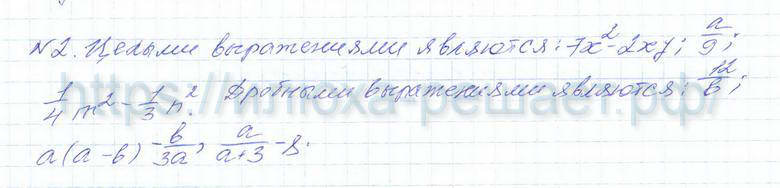 №2. Целыми выражениями являются: 7x²-2xy; a/9;
1/4 m² - 1/3 n². Дробными выражениями являются: 12/b;
a(a-b) - b/3a; a/(a+3) - 8.
https://плюха-решает.рф/